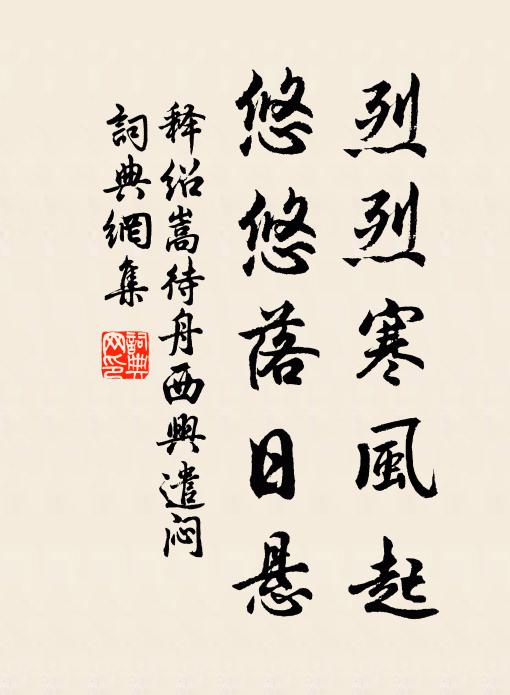 烈烈寒風起
悠悠落日悬
释绍嵩待舟西興遣闷
詞典網集
詞典网印